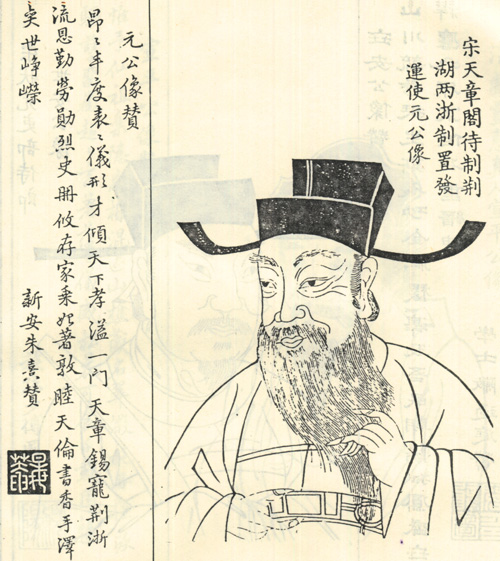 宋天章閣待制荆
湖两浙制置發
運使元公像
元公像贊
昂〻丰度表〻儀形才傾天下孝溢一門天章錫寵荆浙
流恩勤勞勛烈史冊攸存家乘著敦睦天倫書香手澤
奕世崢嶸
新安朱熹赞